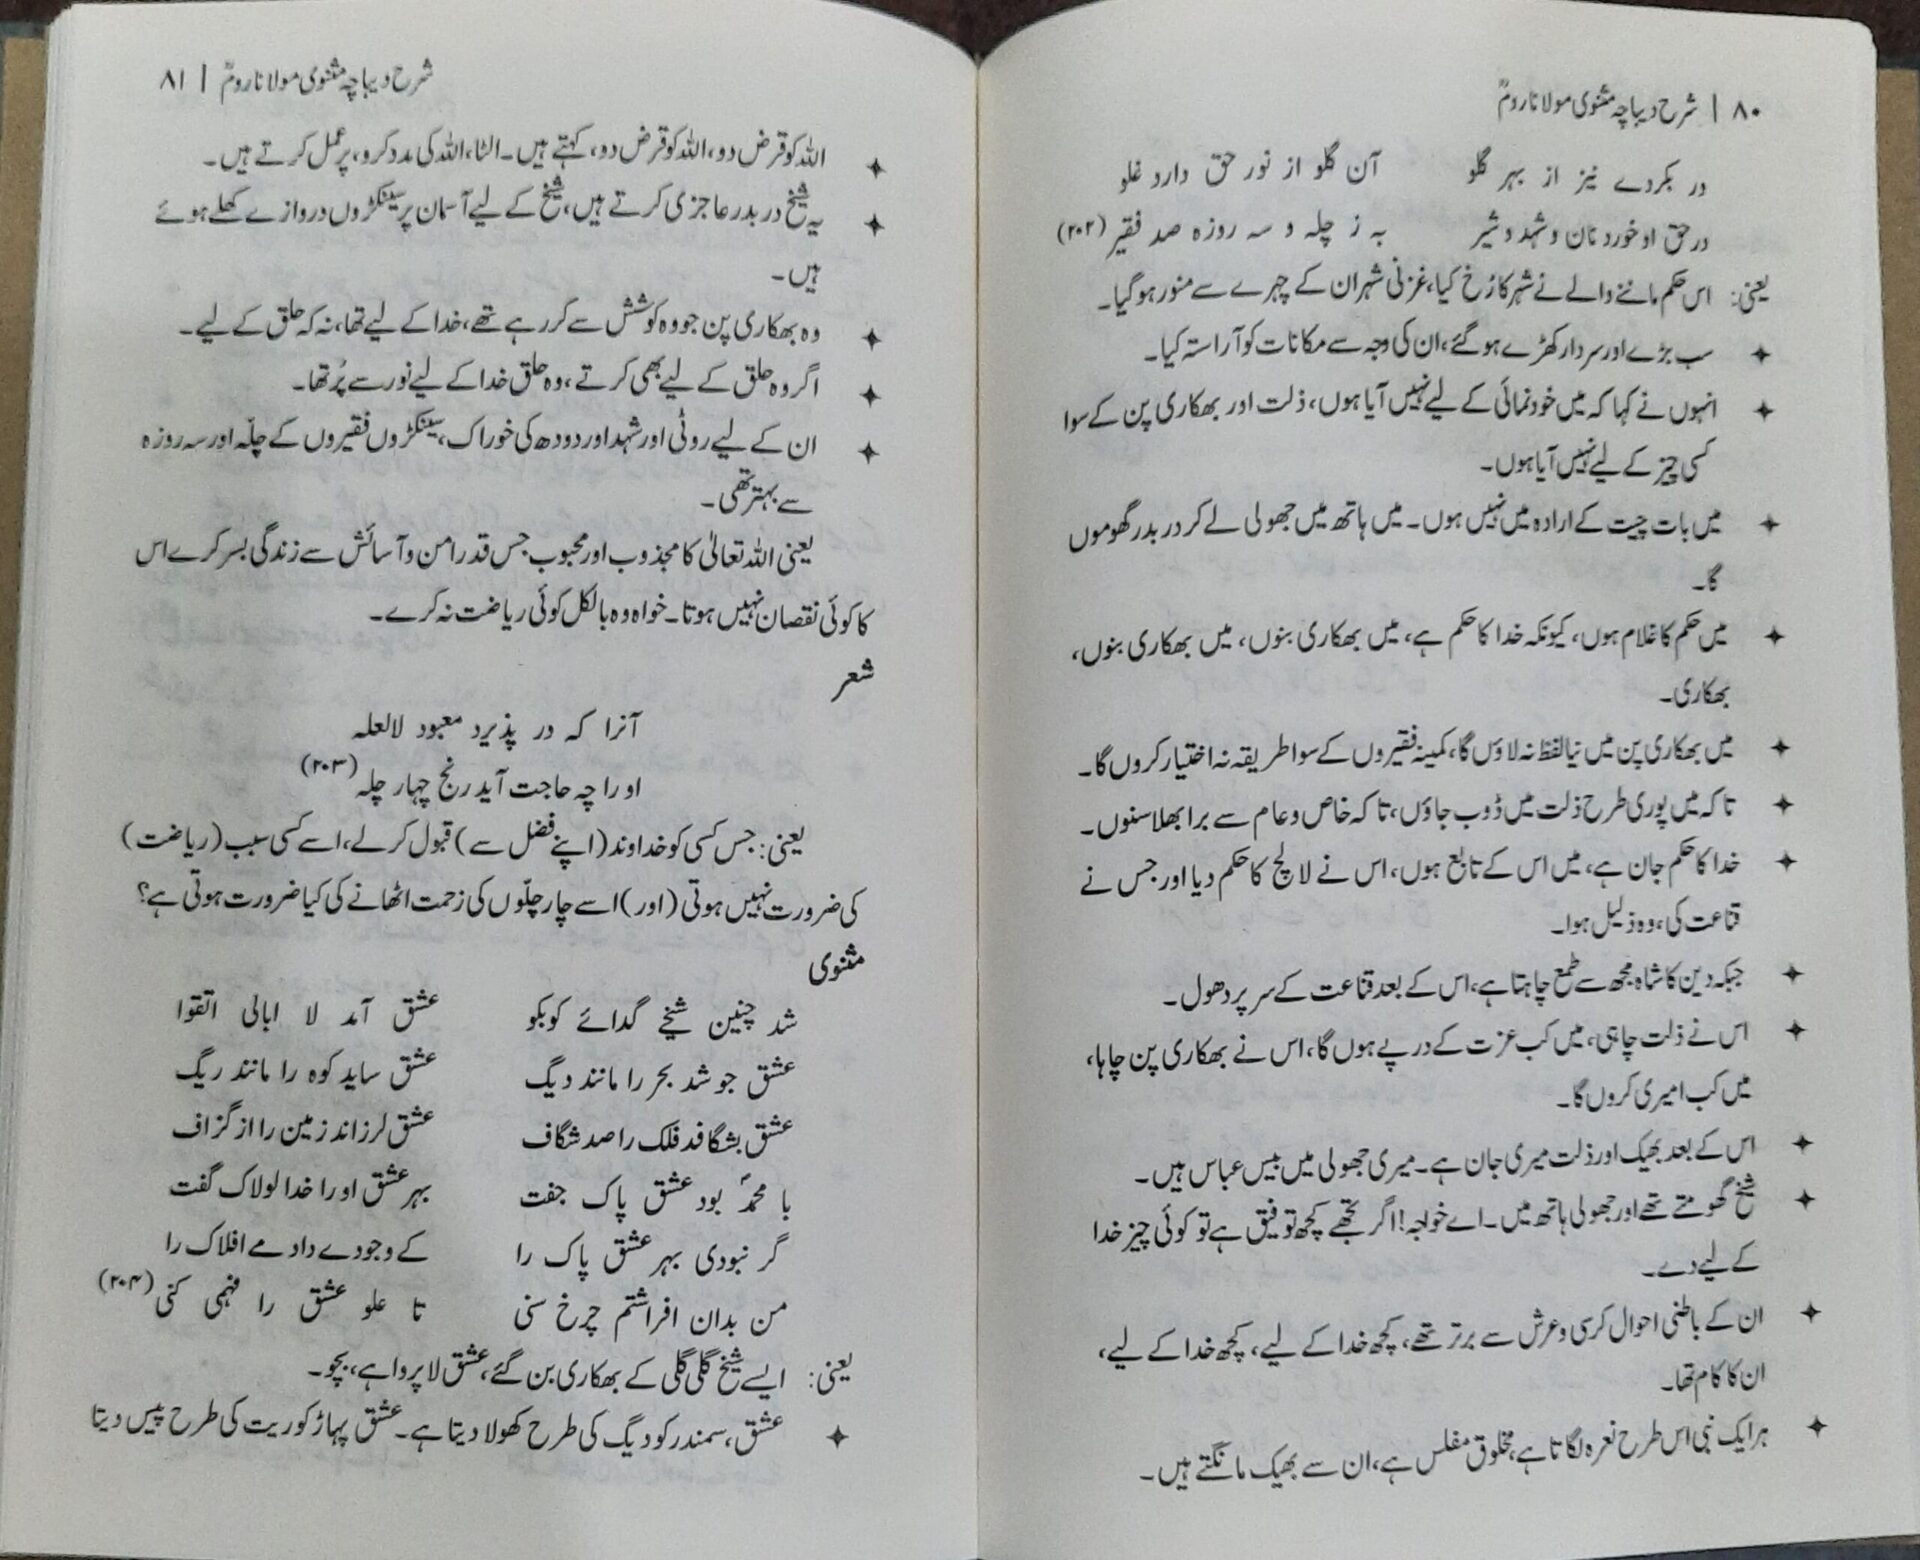 ۸۰ | شرح دیباچہ مثنوی مولانا رومؒ
در بکردے نیز از بہر گلو آن گلو از نور حق دارد غلو
در حق او خورد نان و شہد و شیر بہ ز چلہ و سہ روزہ صد فقیر (۲۰۲)
یعنی: اس حکم ماننے والے نے شہر کا رُخ کیا، غزنی شہران کے چہرے سے منور ہو گیا۔
✦ سب بڑے اور سردار کھڑے ہو گئے، ان کی وجہ سے مکانات کو آراستہ کیا۔
✦ انہوں نے کہا کہ میں خودنمائی کے لیے نہیں آیا ہوں، ذلت اور بھکاری پن کے سوا
کسی چیز کے لیے نہیں آیا ہوں۔
✦ میں بات چیت کے ارادہ میں نہیں ہوں۔ میں ہاتھ میں جھولی لے کر دربدر گھوموں
گا۔
✦ میں حکم کا غلام ہوں، کیونکہ خدا کا حکم ہے، میں بھکاری بنوں، میں بھکاری بنوں،
بھکاری۔
✦ میں بھکاری پن میں نیا لفظ نہ لاؤں گا، کمینہ فقیروں کے سوا طریقہ نہ اختیار کروں گا۔
✦ تاکہ میں پوری طرح ذلت میں ڈوب جاؤں، تاکہ خاص و عام سے برا بھلا سنوں۔
✦ خدا کا حکم جان ہے، میں اس کے تابع ہوں، اس نے لالچ کا حکم دیا اور جس نے
قناعت کی، وہ ذلیل ہوا۔
✦ جبکہ دین کا شاہ مجھ سے طمع چاہتا ہے، اس کے بعد قناعت کے سر پر دھول۔
✦ اس نے ذلت چاہی، میں کب عزت کے درپے ہوں گا، اس نے بھکاری پن چاہا،
میں کب امیری کروں گا۔
✦ اس کے بعد بھیک اور ذلت میری جان ہے۔ میری جھولی میں بیس عباس ہیں۔
✦ شیخ گھومتے تھے اور جھولی ہاتھ میں۔ اے خواجہ! اگر تجھے کچھ توفیق ہے تو کوئی چیز خدا
کے لیے دے۔
✦ ان کے باطنی احوال کرسی و عرش سے برتر تھے، کچھ خدا کے لیے، کچھ خدا کے لیے،
ان کا کام تھا۔
✦ ہر ایک نبی اس طرح نعرہ لگاتا ہے، مخلوق مفلس ہے، ان سے بھیک مانگتے ہیں۔
شرح دیباچہ مثنوی مولانا رومؒ | ۸۱
✦ اللہ کو قرض دو، اللہ کو قرض دو، کہتے ہیں۔ الٹا، اللہ کی مدد کرو، پر عمل کرتے ہیں۔
✦ یہ شیخ دربدر عاجزی کرتے ہیں، شیخ کے لیے آسمان پر سینکڑوں دروازے کھلے ہوئے
ہیں۔
✦ وہ بھکاری پن جو وہ کوشش سے کر رہے تھے، خدا کے لیے تھا، نہ کہ حلق کے لیے۔
✦ اگر وہ حلق کے لیے بھی کرتے، وہ حلق خدا کے لیے نور سے پُر تھا۔
✦ ان کے لیے روٹی اور شہد اور دودھ کی خوراک، سینکڑوں فقیروں کے چلّہ اور سہ روزہ
سے بہتر تھی۔
یعنی اللہ تعالیٰ کا مجذوب اور محبوب جس قدر امن و آسائش سے زندگی بسر کرے اس
کا کوئی نقصان نہیں ہوتا۔ خواہ وہ بالکل کوئی ریاضت نہ کرے۔
شعر
آنرا کہ در پذیرد معبود لالعلہ
او را چہ حاجت آید رنج چہار چلہ (۲۰۳)
یعنی: جس کسی کو خداوند (اپنے فضل سے) قبول کر لے، اسے کسی سبب (ریاضت)
کی ضرورت نہیں ہوتی (اور) اسے چار چلّوں کی زحمت اٹھانے کی کیا ضرورت ہوتی ہے؟
مثنوی
شد چنین شیخے گدائے کو بکو عشق آمد لا ابالی اتقوا
عشق جو شد بحر را مانند دیگ عشق ساید کوہ را مانند ریگ
عشق بشگافد فلک را صد شگاف عشق لرزاند زمین را از گزاف
با محمدؐ بود عشق پاک جفت بہر عشق او را خدا لولاک گفت
گر نبودی بہر عشق پاک را کے وجودے دادمے افلاک را
من بدان افراشتم چرخ سنی تا علو عشق را فہمی کنی (۲۰۴)
یعنی: ایسے شیخ گلی گلی کے بھکاری بن گئے، عشق لاپروا ہے، بچو۔
✦ عشق، سمندر کو دیگ کی طرح کھولا دیتا ہے۔ عشق پہاڑ کو ریت کی طرح پیس دیتا